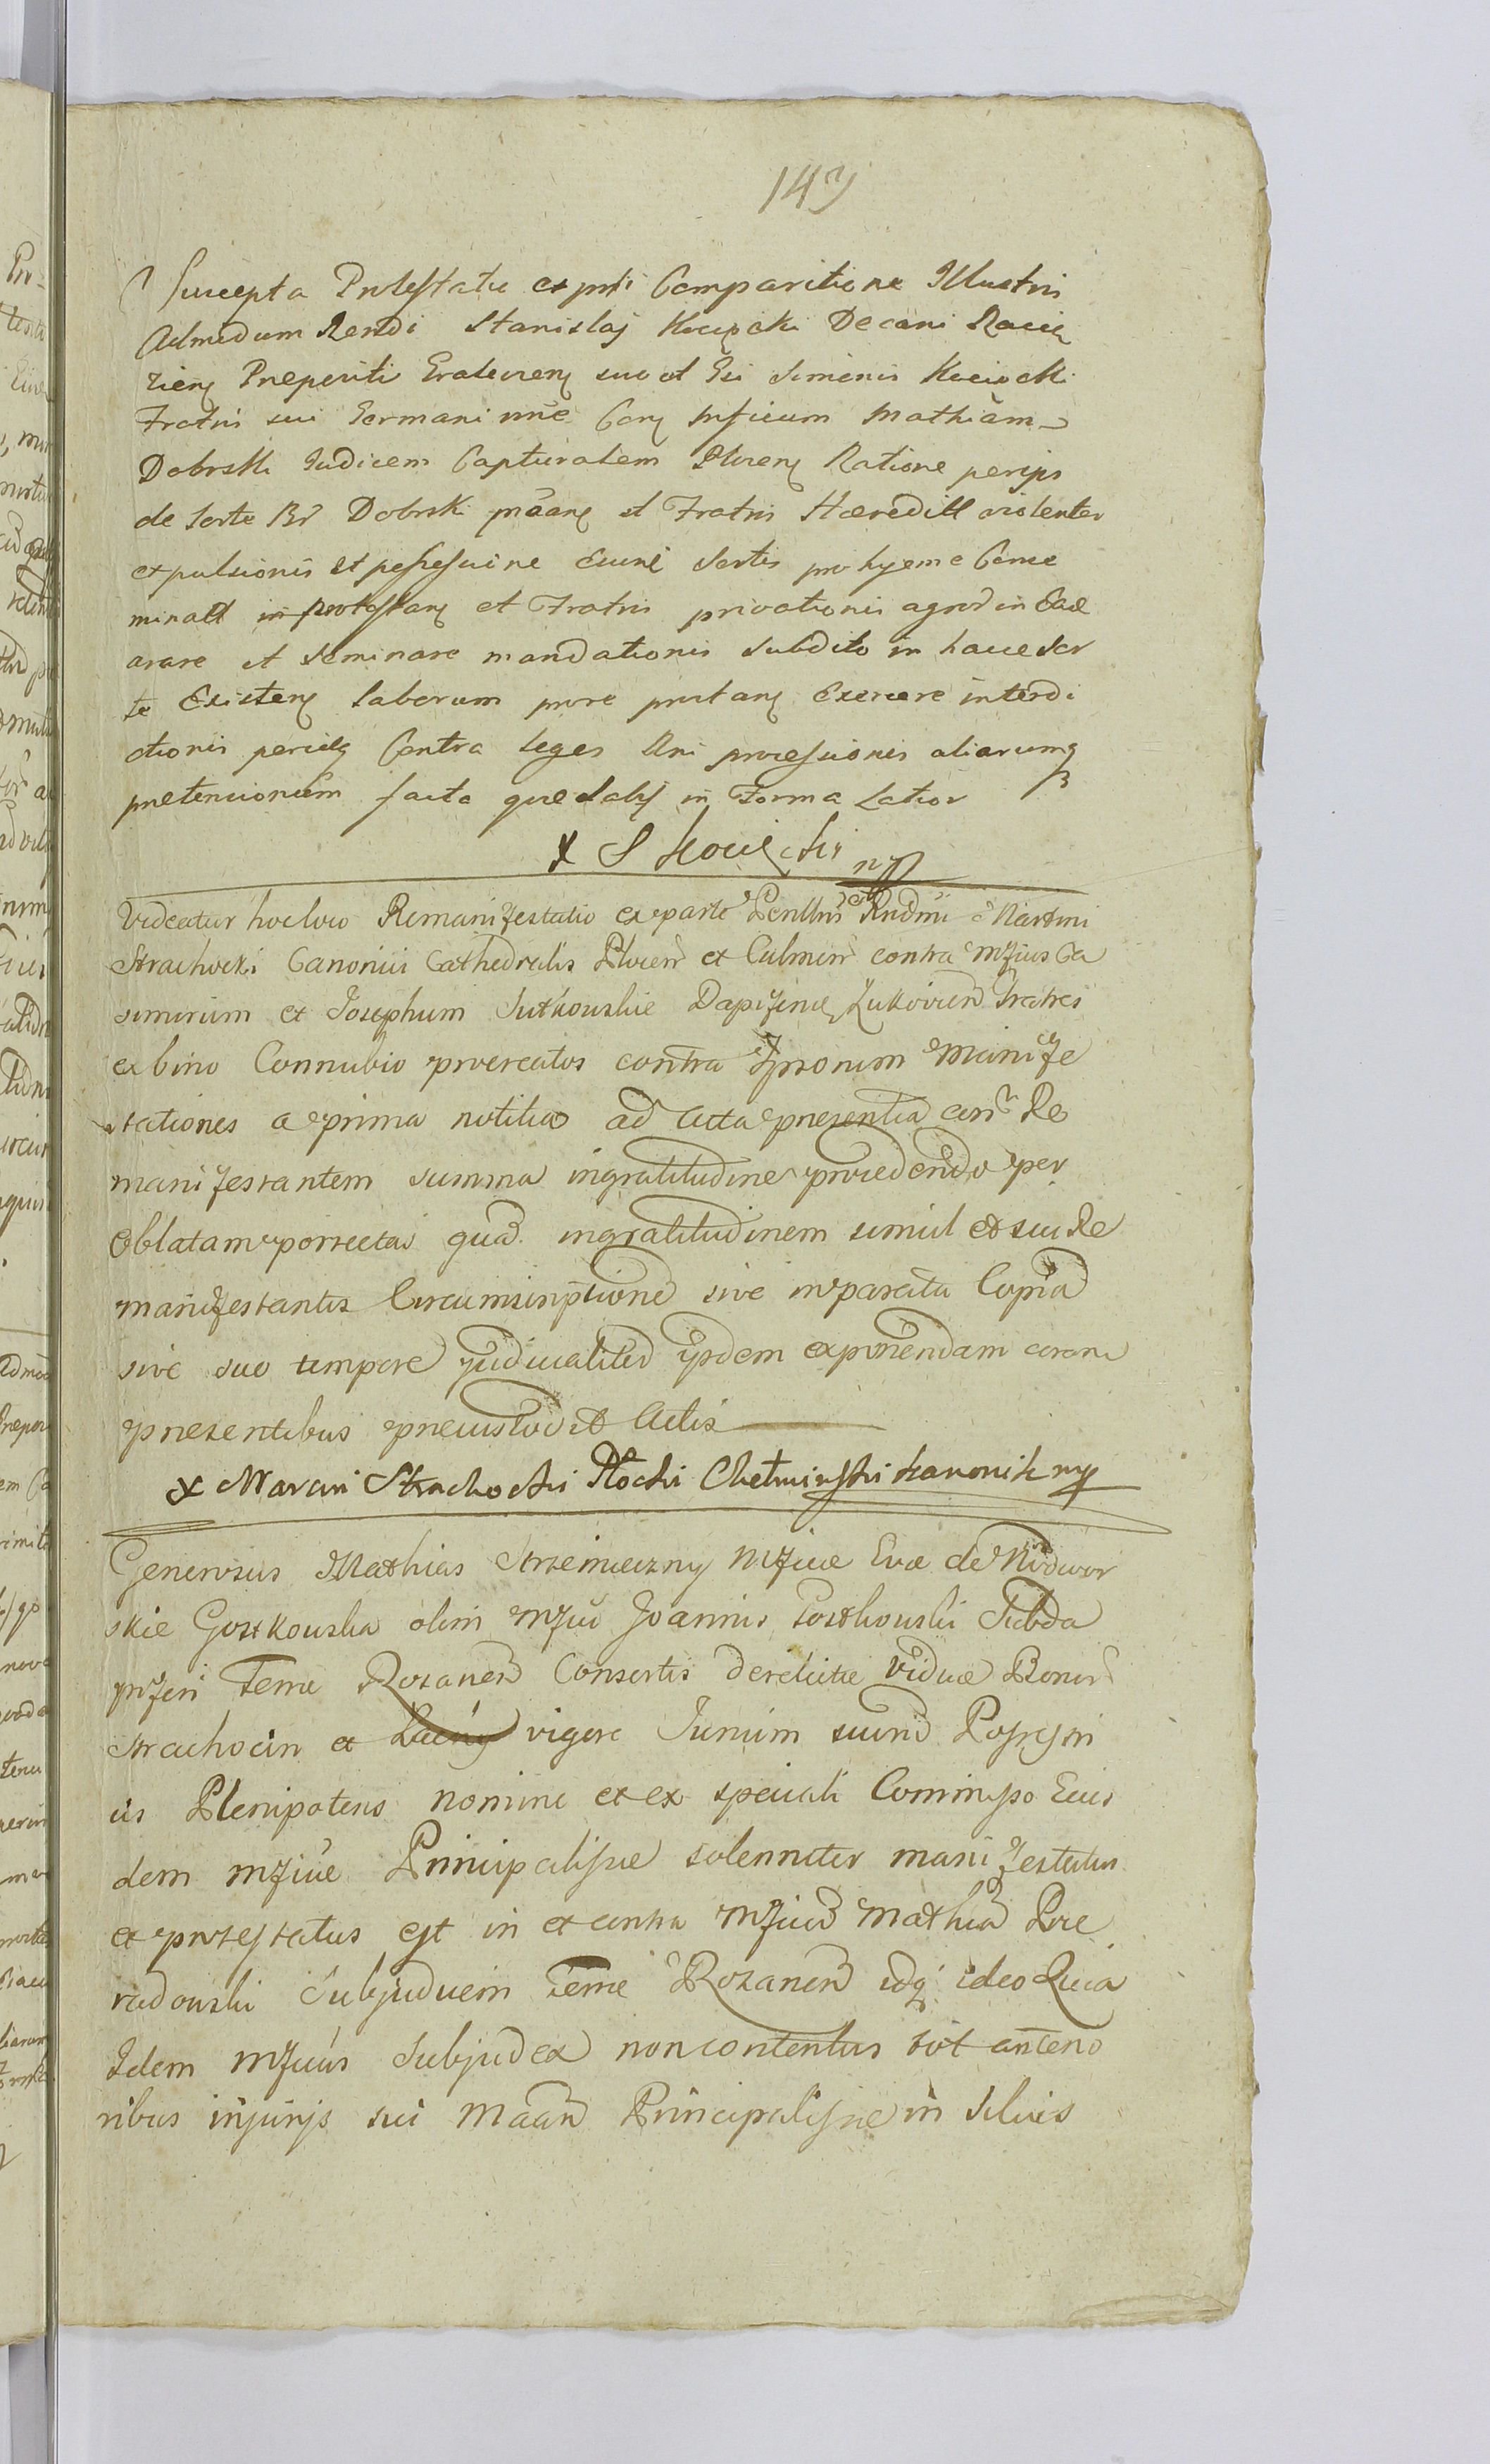 147
Suscepta Protestatio ex prti Comparitione Illustris
Admodum Rendi Stanislaj Kocięcki Decani Racią
zieng Prepositi Gralevieng suo et Gsi Simonis Kocięcki
Fratris sui Germani nne Cong Mficum Mathiam
Dobrski Iudicem Capturalem Ploceng Ratione perips
de Sorte Br Dobrski prāang et Fratris Hæredill violenter
expulsionis et possessione Eiund Sortis pro hyeme Conse
minatt in protestang et Fratris privationis agrod in Ead
arare et Seminare mandationis Subdito in hacce Sor
te Existeng laborum prore protang Exercere interdi
ctionis periculg Contra leges Uni processionis aliarumq
pretencionum facta que Salvj in Forma Latior
X S Kocięcki mp
Videatur hocloco Remanifestatio ex parte Perillris et Rndmi Martini
Strachocki Canonici Cathedralis Plocen et Culmen contra Mficos Ca
simirum et Josephum Sutkowskie Dapiferid Zukovien Fratres
ex bino Connubio procreatos contra Ipsorum Manife
stationes a prima notitia ad Acta presentia conr Re
manifestantem summa ingratitudine procedendo per
Oblatam porrectas quad ingratitudinem simul et sui Re
manifestantis Circumscriptione sive in parata Copia
sive suo tempore judicialiter ijsdem exponendam coram
presentibus precustodit Actis
X Marcin Strachocki Płocki Chełmiński kanonik mp
Generosus Mathias Strzemieczny Mficæ Evæ de Nidwor
skie Gostkowska olim Mfici Joannis Gostkowski Subda
piferi Terræ Rozanen Consortis derelictæ Viduæ Bonor
Strachocin et Łaciny vigore Jurium suord Possessri
cis Plenipotens nomine et ex speciali Commisso Eius
dem Mficæ Principalissæ solenniter manifestatus
et protestatus est in et contra Mficum Mathiam Pie
radowski Subjudicem Terræ Rozanen idq ideo Quia
Idem Mficus Subjudex non contentus tot anterio
ribus injurijs sui Maand Principalissæ in Silvis